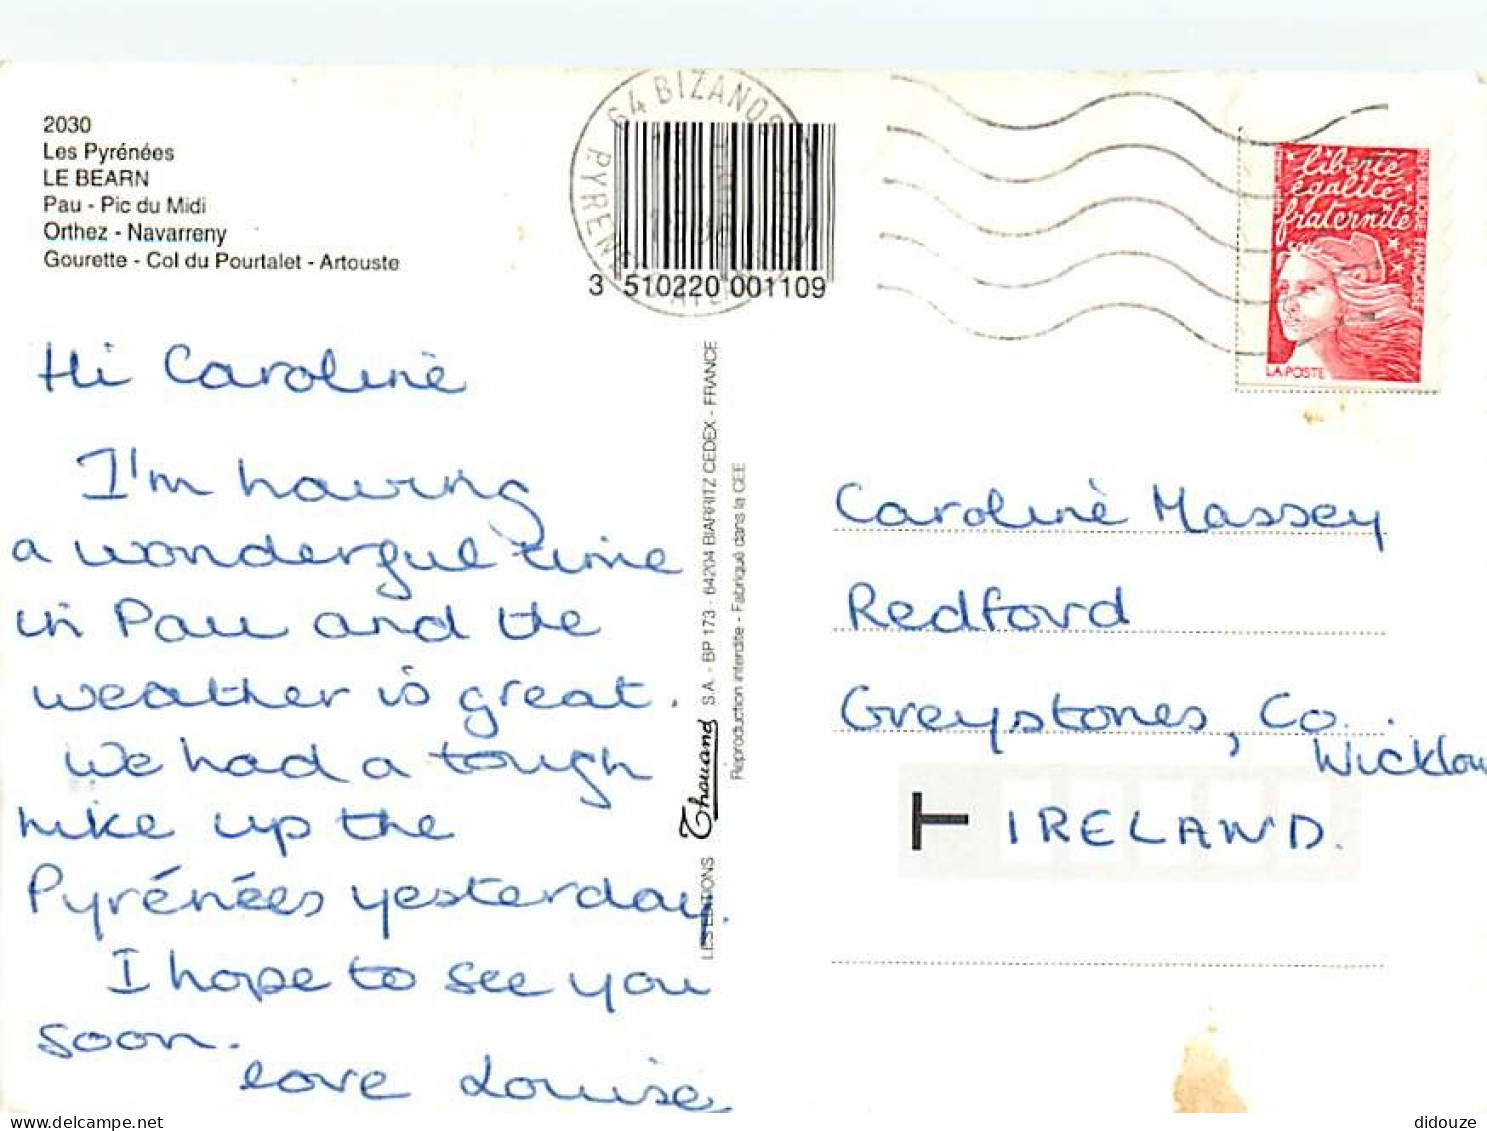 2030
Les Pyrénées
LE BEARN
Pau - Pic du Midi
Orthez - Navarreny
Gourette - Col du Pourtalet - Artouste
64 BIZANOS
3 510220 001109
liberté
égalité
fraternité
REPUBLIQUE FRANCAISE
LA POSTE
Hi Caroline
I'm having
a wonderful time
in Pau and the
weather is great.
We had a tough
hike up the
Pyrénées yesterday.
I hope to see you
soon.
love Louise
LES EDITIONS Thouand S.A. - BP 173 - 64204 BIARRITZ CEDEX - FRANCE
Reproduction interdite - Fabriqué dans la CEE
Caroline Massey
Redford
Greystones, Co.
Wicklow
T IRELAND.
didouze